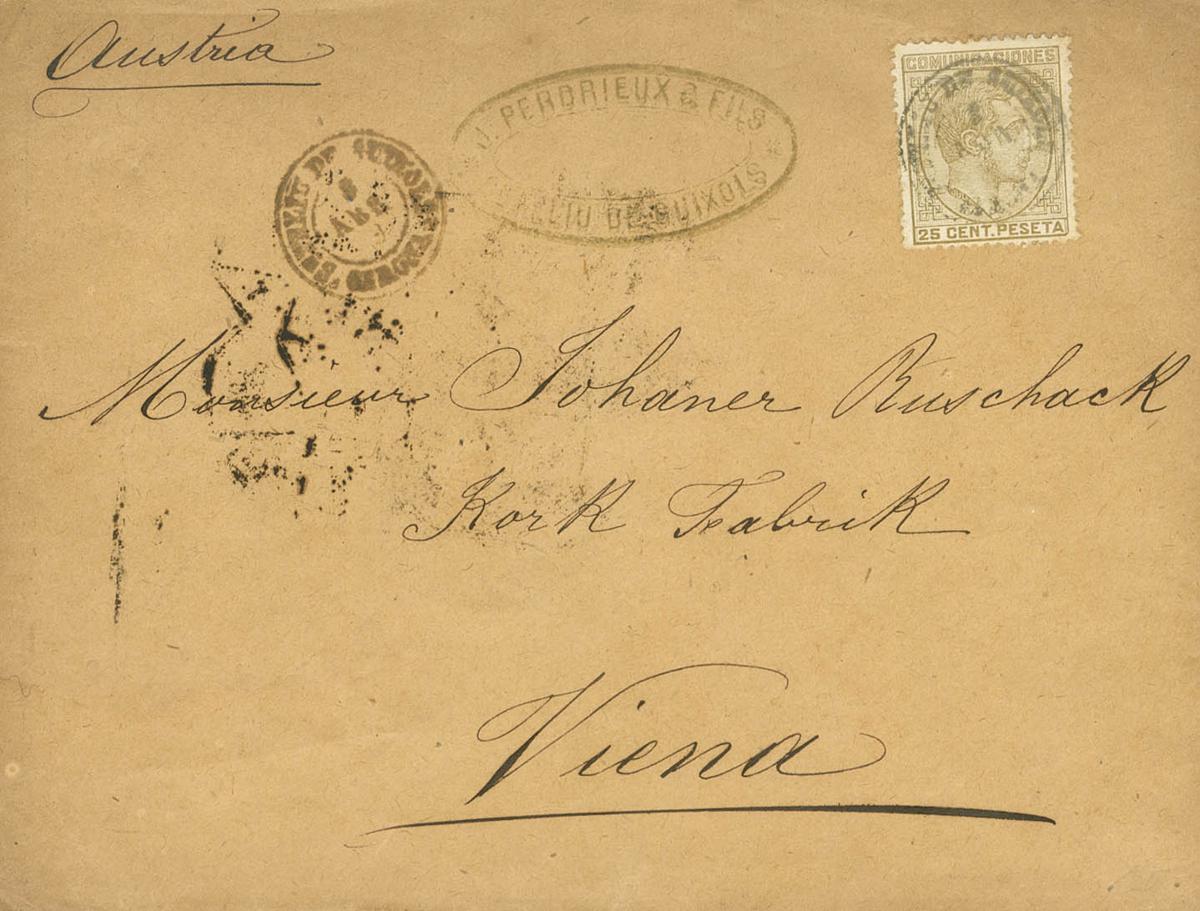 Austria
J. PERDRIEUX & FILS
FELIU DE GUIXOLS
FELIU DE GUIXOLS
GERONA
COMUNICACIONES
25 CENT. PESETA
Monsieur Johaner Ruschack
Kork Fabrik
Viena